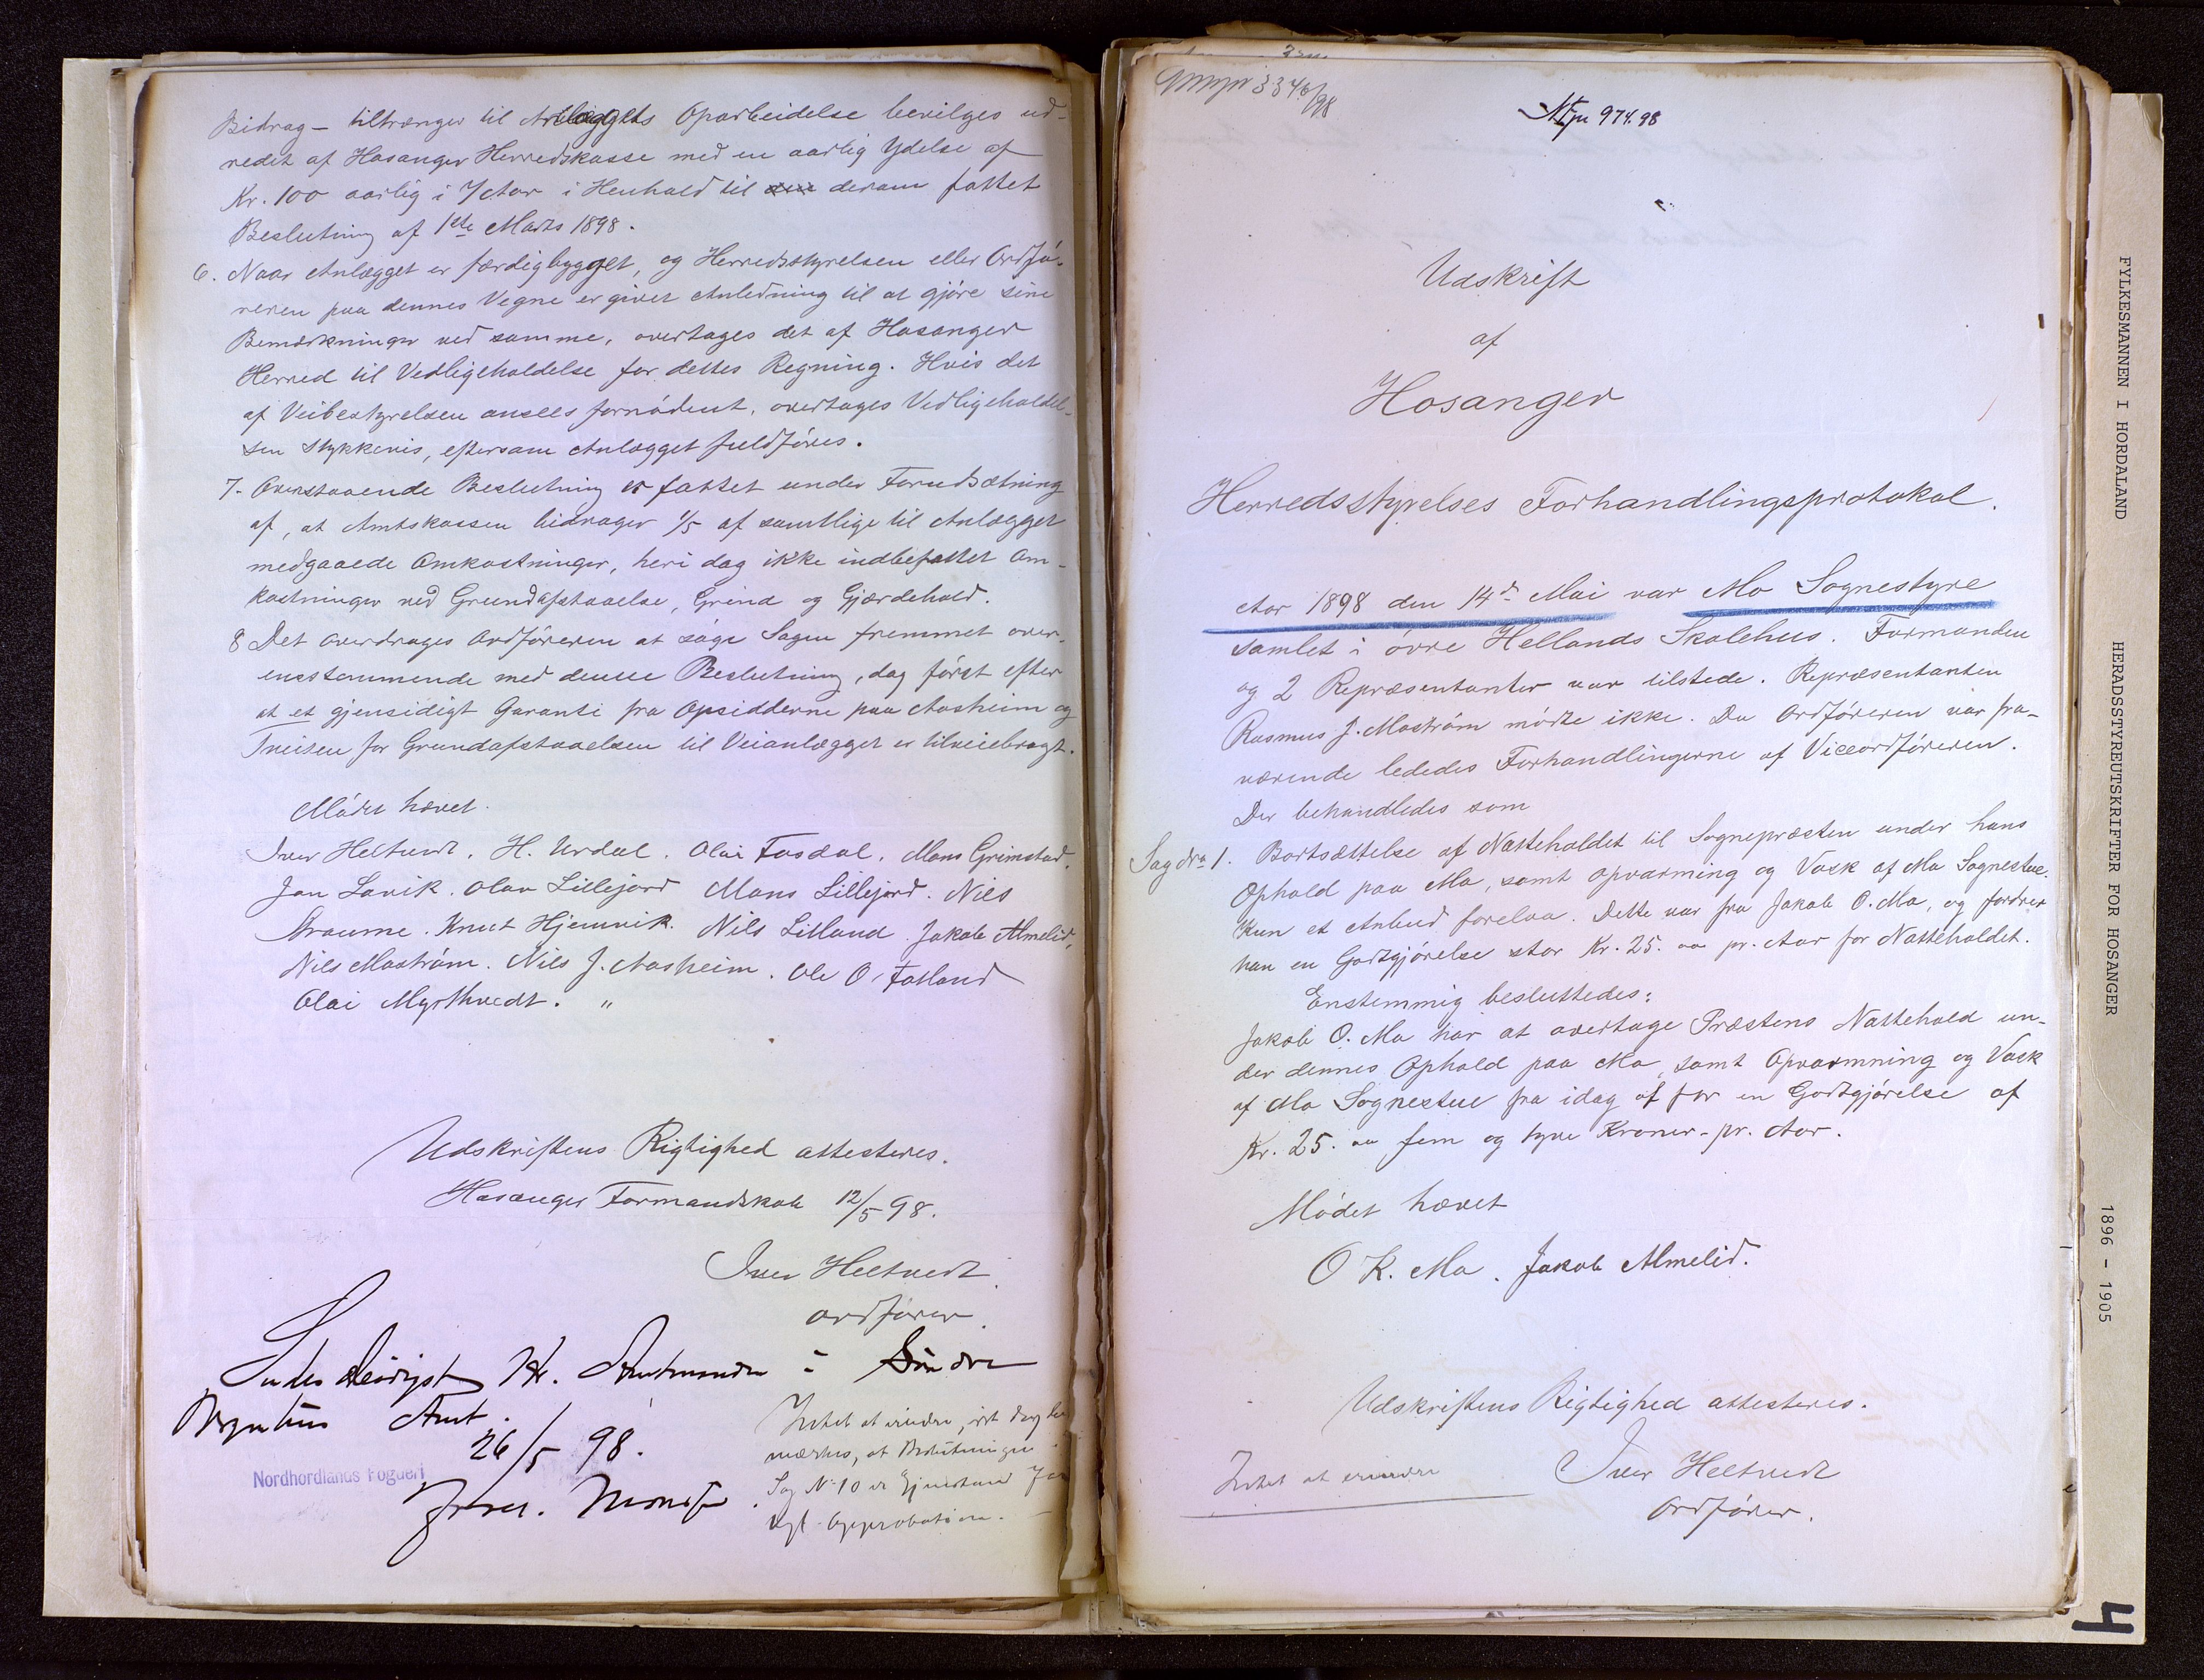 Bidrag - tiltrænges til Anlæggets Oparbeidelse bevilges ud-
redet af Hosanger Herredskasse med en aarlig Ydelse af
Kr. 100 aarlig i 7 Aar i Henhold til derom fattet
Beslutning af 1ste Marts 1898.
6. Naar Anlægget er færdigbygget, og Herredsstyrelsen eller Ordfö-
reren paa dennes Vegne er givet Anledning til at gjöre sine
Bemærkninger ved samme, overtages det af Hosanger
Herred til Vedligeholdelse for dettes Regning. Hvis det
af Veibestyrelsen ansees fornödent, overtages Vedligeholdel-
sen stykkevis, eftersom Anlægget fuldföres.
7. Ovenstaaende Beslutning er fattet under Forudsætning
af, at Amtskassen bidrager 1/5 af samtlige til Anlægget
medgaaede Omkostninger, heri dog ikke indbefattet Om-
kostninger ved Grundafstaaelse, Grind og Gjærdehold.
8 Det overdrages Ordföreren at söge Sagen fremmet over-
ensstemmende med denne Beslutning, dog först efter
at et gjensidigt Garanti fra Opsidderne paa Aasheim og
Tveiten for Grundafstaaelsen til Veianlægget er tilveiebragt.
Mödet hævet.
Iver Heltvedt. H. Urdal. Olai Fosdal. Mons Grimstad.
Jon Lavik. Olav Lillejord Mons Lillejord. Nils
Straume. Knut Hjemvik. Nils Litland. Jakob Almelid,
Nils Moström. Nils J. Aasheim. Ole O. Fatland
Olai Myrthvedt. "
Udskriftens Rigtighed attesteres.
Hosanger Formandskab 12/5 98.
Iver Heltvedt
Ordförer.
Sendes Hr. Amtmanden i Söndre
Bergenhus Amt.
26/5 98.
Nordhordlands Fogderi
Intet at erindre, idet dog be-
mærkes, at Beslutningen i
Sag No 10 er Gjenstand for
kgl. Approbation.
3346/98
974.98
Udskrift
af
Hosanger
Herredsstyrelses Forhandlingsprotokol.
Aar 1898 den 14de Mai var Mo Sognestyre
samlet i övre Hellands Skolehus. Formanden
og 2 Repræsentanter var tilstede. Repræsentanten
Rasmus J. Moström mödte ikke. Da Ordföreren var fra-
værende lededes Forhandlingerne af Viceordföreren.
Der behandledes som
Sag No 1. Bortsættelse af Natteholdet til Sognepræsten under hans
Ophold paa Mo, samt Opvarming og Vask af Mo Sognestue.
Kun et Anbud forelaa. Dette var fra Jakob O. Mo, og fordrer
han en Godtgjörelse stor Kr. 25.00 pr. Aar for Natteholdet.
Enstemmig besluttedes:
Jakob O. Mo har at overtage Præstens Nattehold un-
der dennes Ophold paa Mo, samt Opvarmning og Vask
af Mo Sognestue fra idag af for en Godtgjörelse af
Kr. 25.00 fem og tyve Kroner - pr. Aar.
Mödet hævet
O K. Mo. Jakob Almelid.
Udskriftens Rigtighed attesteres.
Intet at erindre
Iver Heltvedt
Ordförer.
FYLKESMANNEN I HORDALAND
HERADSSTYREUTSKRIFTER FOR HOSANGER
1896 - 1905
4